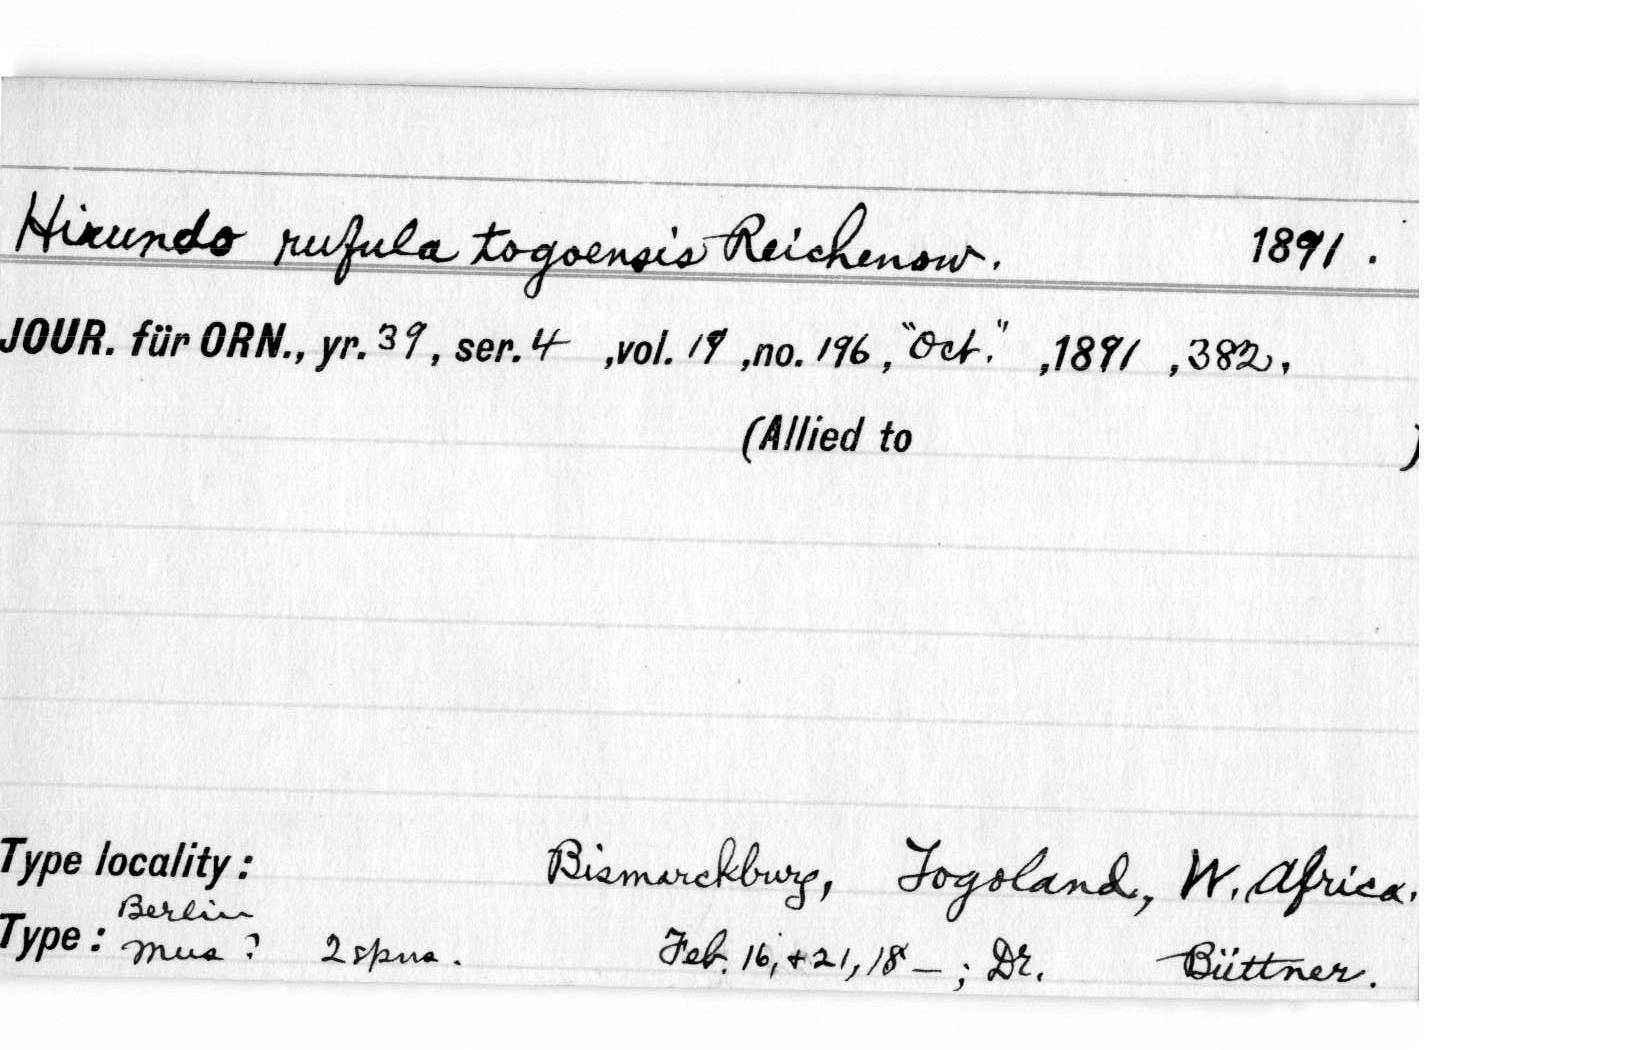 Hirundo rufula togoensis Reichenow. 1891.
JOUR. für ORN., yr. 39, ser. 4, vol. 19, no. 196, "Oct.", 1891, 382,
(Allied to )
Type locality: Bismarckburg, Togoland, W. Africa.
Berlin
Type: Mus? 2 spns. Feb. 16, + 21, 18 —; Dr. Büttner.